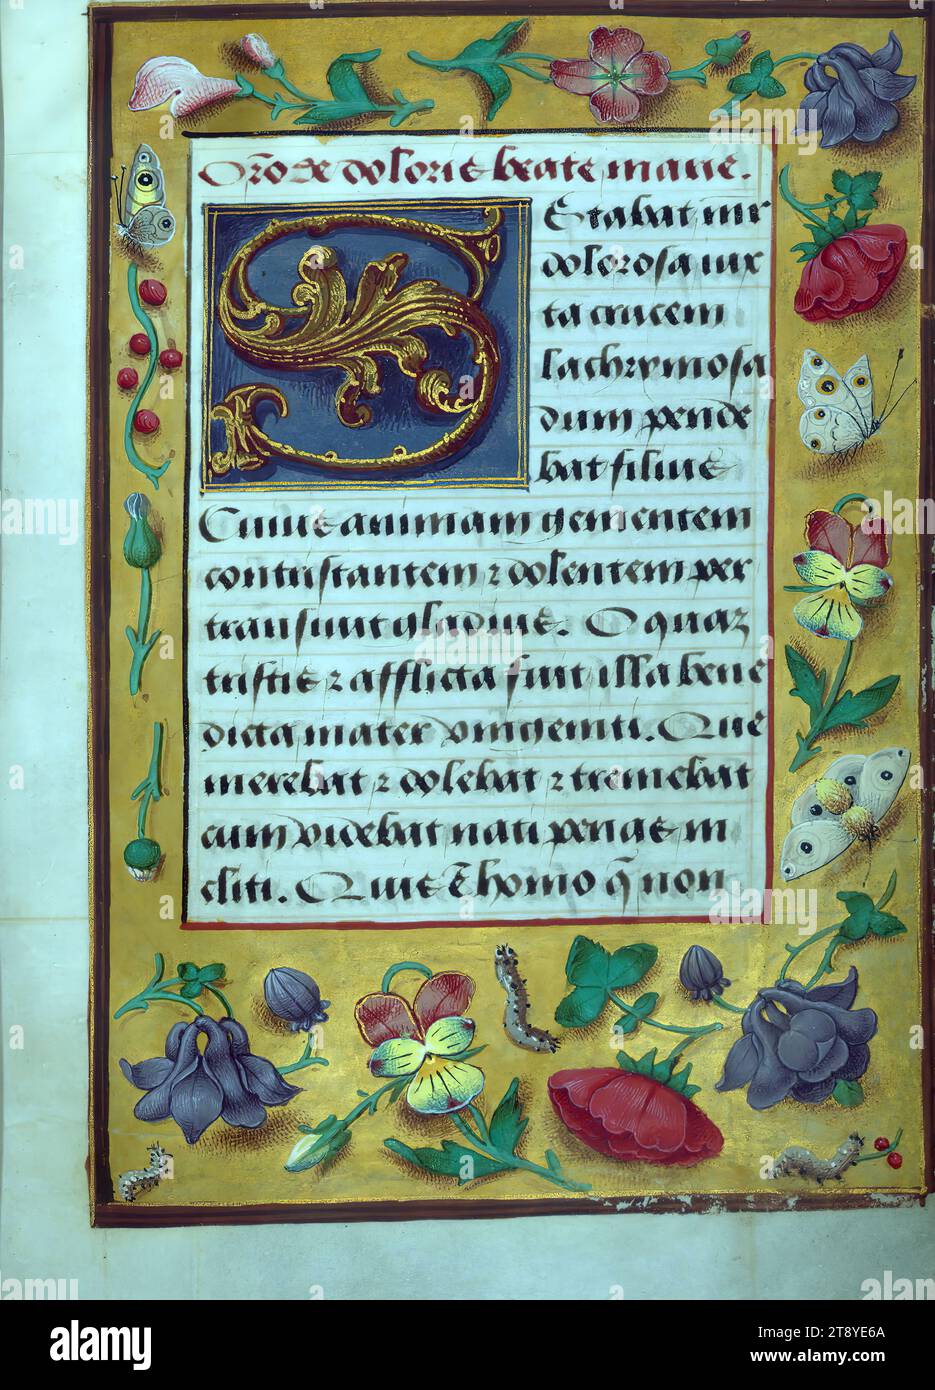 Oro de doloris beate marie.
Stabat mr
dolorosa iux
ta crucem
lachrymosa
dum pende
bat filius
Cuius animam gementem
contristantem ⁊ dolentem per
transiuit gladius. O quaz
tristis ⁊ afflicta fuit illa bene
dicta mater vnigeniti. Que
merebat ⁊ dolebat ⁊ tremebat
cum videbat nati penas in
cliti. Quis e homo q non
alamy
Image ID: 2T8YE6A
www.alamy.com